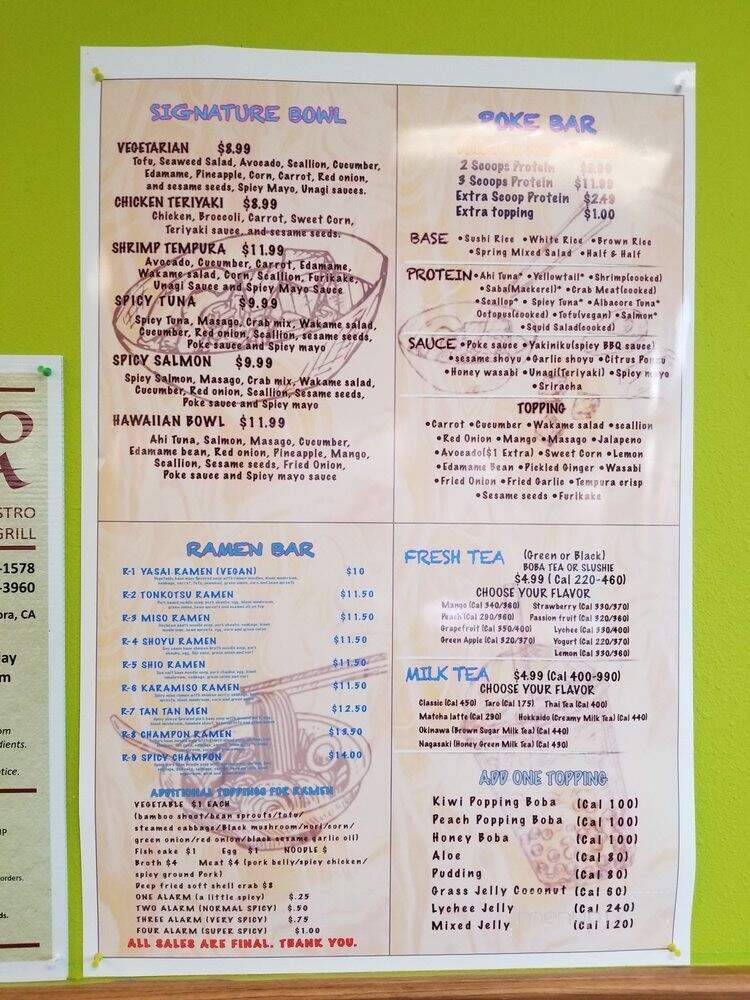 SIGNATURE BOWL
VEGETARIAN $8.99
Tofu, Seaweed Salad, Avocado, Scallion, Cucumber,
Edamame, Pineapple, Corn, Carrot, Red onion,
and sesame seeds, Spicy Mayo, Unagi sauces.
CHICKEN TERIYAKI $8.99
Chicken, Broccoli, Carrot, Sweet Corn,
Teriyaki sauce, and sesame seeds.
SHRIMP TEMPURA $11.99
Avocado, Cucumber, Carrot, Edamame,
Wakame salad, Corn, Scallion, Furikake,
Unagi Sauce and Spicy Mayo Sauce
SPICY TUNA $9.99
Spicy Tuna, Masago, Crab mix, Wakame salad,
Cucumber, Red onion, Scallion, sesame seeds,
Poke sauce and Spicy mayo
SPICY SALMON $9.99
Spicy Salmon, Masago, Crab mix, Wakame salad,
Cucumber, Red onion, Scallion, Sesame seeds,
Poke sauce and Spicy mayo
HAWAIIAN BOWL $11.99
Ahi Tuna, Salmon, Masago, Cucumber,
Edamame bean, Red onion, Pineapple, Mango,
Scallion, Sesame seeds, Fried Onion,
Poke sauce and Spicy mayo sauce
POKE BAR
2 Scoops Protein
3 Scoops Protein $11.99
Extra Scoop Protein $2.49
Extra topping $1.00
BASE •Sushi Rice •White Rice •Brown Rice
•Spring Mixed Salad •Half & Half
PROTEIN •Ahi Tuna* •Yellowtail* •Shrimp(cooked)
•Saba(Mackerel)* •Crab Meat(cooked)
•Scallop* • Spicy Tuna* •Albacore Tuna*
Octopus(cooked) •Tofu(vegan) •Salmon*
•Squid Salad(cooked)
SAUCE •Poke sauce •Yakiniku(spicy BBQ sauce)
•sesame shoyu •Garlic shoyu •Citrus Ponzu
•Honey wasabi •Unagi(Teriyaki) •Spicy mayo
•Sriracha
TOPPING
•Carrot •Cucumber •Wakame salad •scallion
•Red Onion •Mango •Masago •Jalapeno
•Avocado($1 Extra) •Sweet Corn •Lemon
•Edamame Bean •Pickled Ginger •Wasabi
•Fried Onion •Fried Garlic •Tempura crisp
•Sesame seeds •Furikake
RAMEN BAR
R-1 YASAI RAMEN (VEGAN) $10
R-2 TONKOTSU RAMEN $11.50
R-3 MISO RAMEN $11.50
R-4 SHOYU RAMEN $11.50
R-5 SHIO RAMEN $11.50
R-6 KARAMISO RAMEN $11.50
R-7 TAN TAN MEN $12.50
R-8 CHAMPON RAMEN $13.50
R-9 SPICY CHAMPON $14.00
ADDITIONAL TOPPINGS FOR RAMEN
VEGETABLE $1 EACH
(bamboo shoot/bean sprouts/tofu/
steamed cabbage/Black mushroom/nori/corn/
green onion/red onion/black sesame garlic oil)
Fish cake $1 Egg $1 NOODLE $
Broth $4 Meat $4 (pork belly/spicy chicken/
spicy ground Pork)
Deep fried soft shell crab $8
ONE ALARM (a little spicy) $.25
TWO ALARM (NORMAL SPICY) $.50
THREE ALARM (VERY SPICY) $.75
FOUR ALARM (SUPER SPICY) $1.00
ALL SALES ARE FINAL. THANK YOU.
FRESH TEA (Green or Black)
BOBA TEA OR SLUSHIE
$4.99 ( Cal 220-460)
CHOOSE YOUR FLAVOR
Mango (Cal 340/360) Strawberry (Cal 330/370)
Peach (Cal 290/360) Passion fruit (Cal 320/360)
Grapefruit (Cal 350/400) Lychee (Cal 330/400)
Green Apple (Cal 320/370) Yogurt (Cal 220/360)
Lemon (Cal 330/360)
MILK TEA $4.99 (Cal 400-990)
CHOOSE YOUR FLAVOR
Classic (Cal 450) Taro (Cal 175) Thai Tea (Cal 400)
Matcha latte (Cal 290) Hokkaido (Creamy Milk Tea) (Cal 440)
Okinawa (Brown Sugar Milk Tea) (Cal 440)
Nagasaki (Honey Green Milk Tea) (Cal 430)
ADD ONE TOPPING
Kiwi Popping Boba (Cal 100)
Peach Popping Boba (Cal 100)
Honey Boba (Cal 100)
Aloe (Cal 80)
Pudding (Cal 80)
Grass Jelly Coconut (Cal 60)
Lychee Jelly (Cal 240)
Mixed Jelly (Cal 120)
STRO
GRILL
-1578
-3960
ora, CA
ay
m
om
dients.
tice.
IP
orders.
ds.